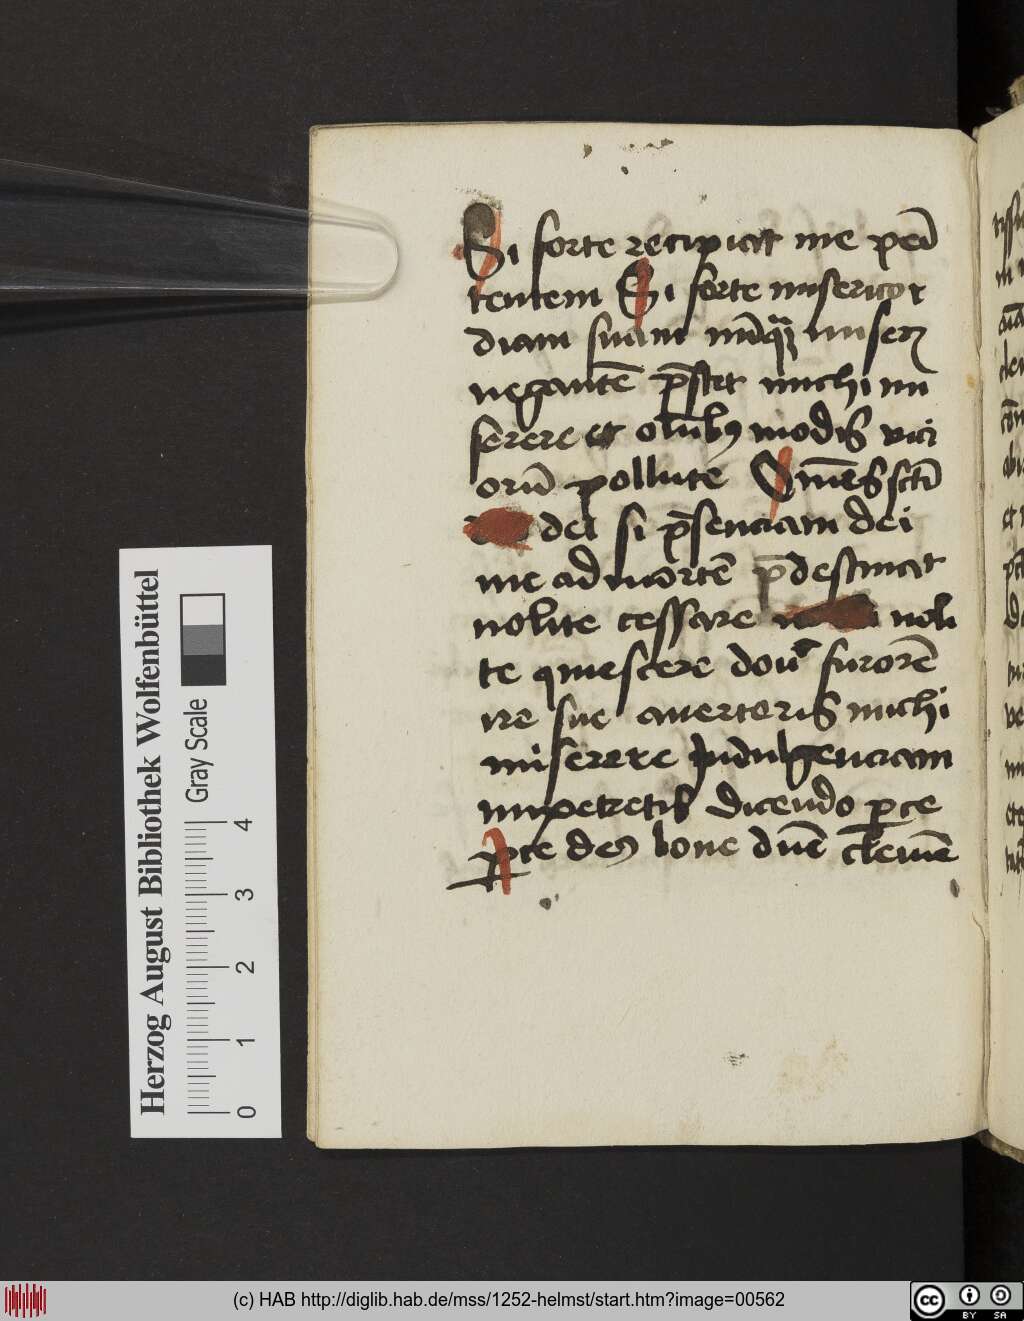 Si forte recipiat me peni
tentem Si forte misericor
diam suam nūq̄ȝ miser
negantē p̄stet michi mi
serere et oībꝰ modis vici
orū pollute Om̄es sctī
dei si p̄senciam dei
me ad mortē p̄destinat
nolite cessare noli
te quiescere donͨ furorē
ire sue auerteris michi
miserere Indulgenciam
impetretis dicendo ꝑce
ꝑce deꝰ bone dn̄e clemē
Herzog August Bibliothek Wolfenbüttel
Gray Scale
0 1 2 3 4
(c) HAB http://diglib.hab.de/mss/1252-helmst/start.htm?image=00562
cc BY SA